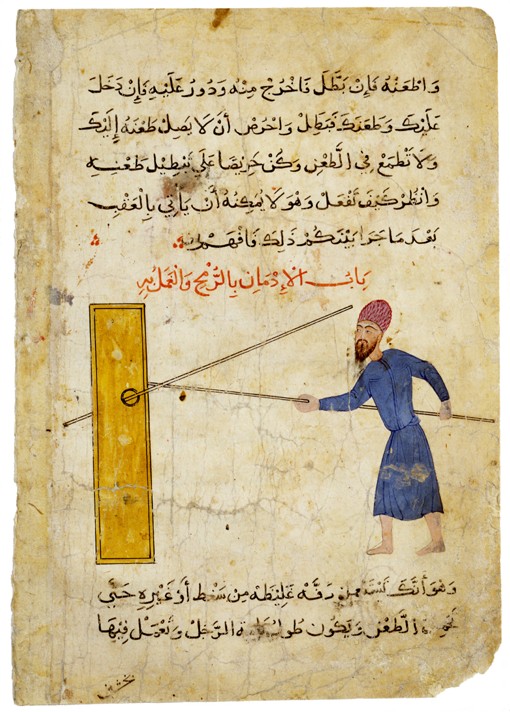 وَاطْعَنْهُ فَإِنْ بَطَّلَ فَاخْرُجْ مِنْهُ وَدُورُ عَلَيْهِ فَإِنْ دَخَلَ
عَلَيْكَ وَطَعَنَكَ فَبَطِلْ وَاحْرُصْ أَنْ لَا يَصِلْ طَعْنُهُ إِلَيْكَ
وَلَا تَطْمَعْ فِي الطَّعْنِ وَكُنْ حَرِيصًا عَلَى تَبْطِيلِ طَعْنِهِ
وَانْظُرْ كَيْفَ تَفْعَلْ وَهُوَ لَا يُمْكِنُهُ أَنْ يَأْتِي بِالْعَقْبِ
بَعْدَ مَا جَرَا بَيْنَكُمْ ذَلِكَ فَافْهَمْ
بَابُ الْإِدْمَانِ بِالرُّمْحِ وَالْعَمَلُ بِهِ
وَهُوَ أَنَّكَ دَفَّهْ غَلِيظَهْ مِنْ سَنْطٍ أَوْ غَيْرِهِ حَتَّى
الطَّعْنِ وَيَكُونُ طُولُ الرَّجُلْ وَتَعْمَلْ فِيهَا